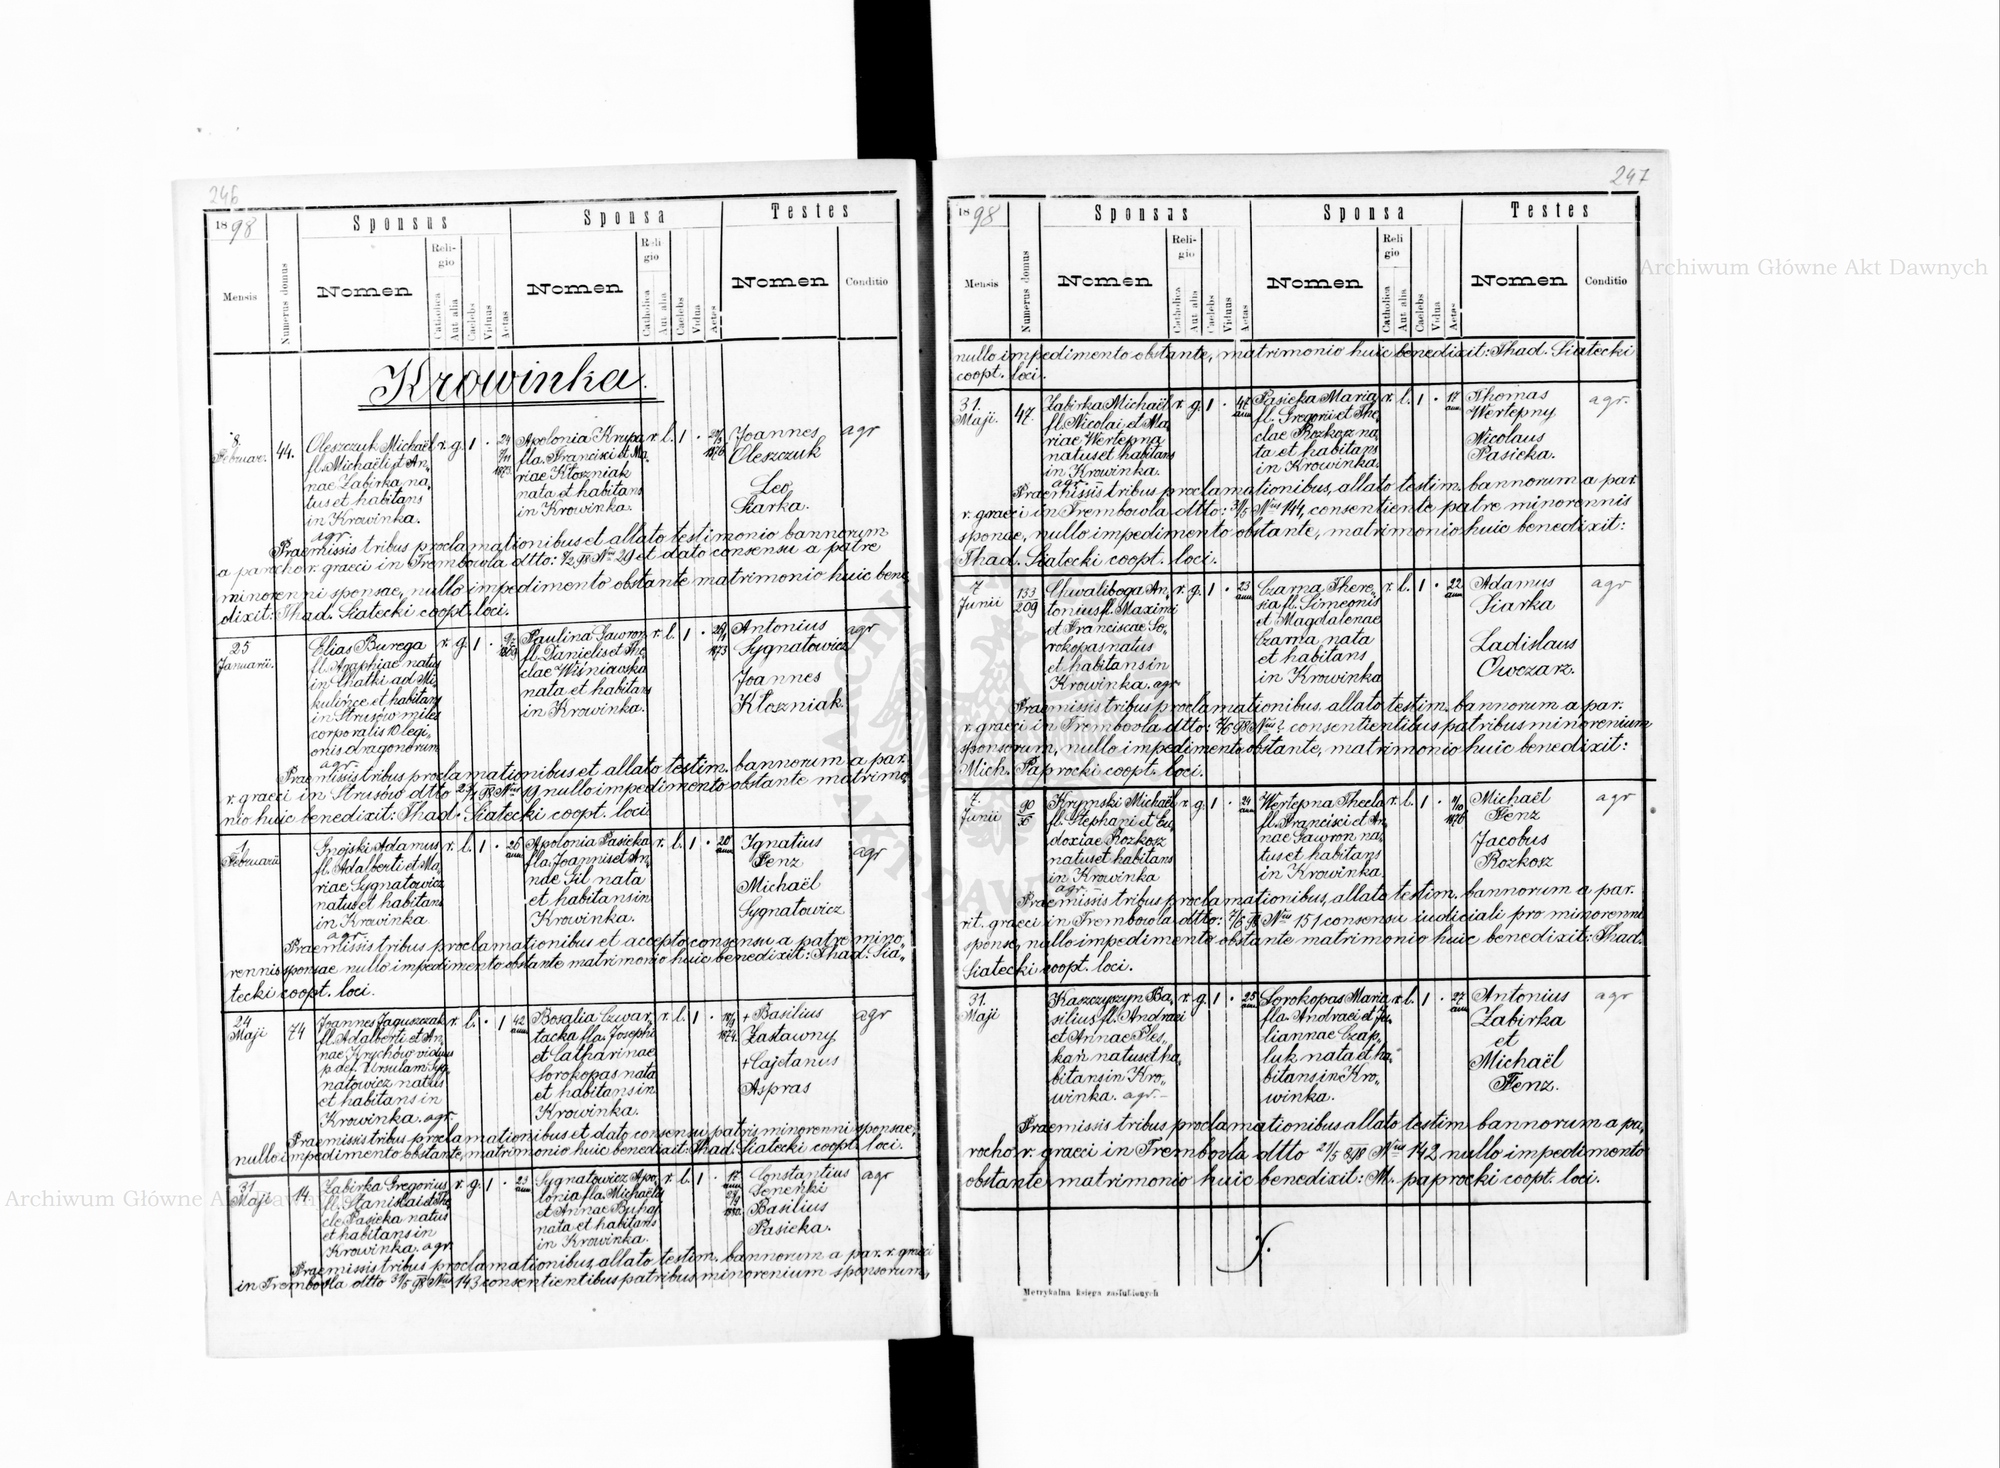 246
1898
Sponsus
Sponsa
Testes
Mensis
Numerus domus
Nomen
Religio
Catholica
Aut alia
Caelebs
Viduus
Aetas
Nomen
Religio
Catholica
Aut alia
Caelebs
Vidua
Aetas
Nomen
Conditio
Krowinka.
8.
Februar.
44.
Oleszczuk Michaël
fl. Michaëli et An„
nae Zabirka na„
tus et habitans
in Krowinka.
agr.
r. g. 1 .
Apolonia Krupa
fla. Francisci et Ma„
riae Kłoszniak
nata et habitans
in Krowinka.
r. l. 1 .
Joannes
Oleszczuk
Leo
Siarka.
agr
Praemissis tribus proclamationibus et allato testimonio bannorum
a parcho r. graeci in Trembowla dtto: 7/2 98 Nrus 29 et dato consensu a patre
minorenni sponsae, nullo impedimento obstante matrimonio huic bene„
dixit: Thad. Siatecki coopt. loci.
25
Januarii.
Elias Burega
fl. Araphiae natus
in Chatki ad Mi„
kulińce et habitans
in Strusów miles
corporalis 10 legi„
onis dragonorum
agr.
r. g. 1 .
Paulina Gawron
fl. Danielis et The„
clae Wiśniawska
nata et habitans
in Krowinka.
r. l. 1 .
Antonius
Sygnatowicz
Joannes
Kłoszniak.
agr
Praemissis tribus proclamationibus et allato testim. bannorum a par.
r. graeci in Strusów dtto 98 Nrus 19 nullo impedimento obstante matrimo„
nio huic benedixit: Thad. Siatecki coopt. loci.
1
Februarii
Gnojski Adamus
fl. Adalberti et Ma„
riae Sygnatowicz
natus et habitans
in Krowinka
agr.
r. l. 1 . 26 ann
Apolonia Pasieka
fla. Joannis et An„
nae Gil nata
et habitans in
Krowinka.
r. l. 1 . 20 ann
Ignatius
Fenz
Michaël
Sygnatowicz
agr
Praemissis tribus proclamationibus et accepto consensu a patre mino„
rennis sponsae nullo impedimento obstante matrimonio huic benedixit: Thad: Sia„
tecki coopt. loci.
24
Maji
74
Joannes Jaguszczak
fl. Adalberti et An„
nae Krychów viduus
p. def. Ursulam Syg„
natowicz natus
et habitans in
Krowinka. agr.
r. l. . 1 42 ann
Rosalia Czwar„
tacka fla. Josephi
et Catharinae
Sorokopas nata
et habitans in
Krowinka.
r. l. 1 .
+ Basilius
Zastawny.
+ Cajetanus
Aspras
agr
Praemissis tribus proclamationibus et dato consensu patris minorenni sponsae,
nullo impedimento obstante, matrimonio huic benedixit: Thad. Siatecki coopt. loci.
31
Maji
14.
Zabirka Gregorius
fl. Stanislai et The„
cle Pasieka natus
et habitans in
Krowinka. agr.
r. g. 1 . 23 ann
Sygnatowicz Apo„
lonia fla. Michaëlis
et Annae Buhaj
nata et habitans
in Krowinka.
r. l. 1 . 17 ann
Constantius
Senenki
Basilius
Pasieka.
agr
Praemissis tribus proclamationibus, allato testim. bannorum a par. r. graeci
in Trembowla dtto 31/5 98 Nrus 143 consentientibus patribus minorenium sponsorum,
247
1898
Sponsus
Sponsa
Testes
Mensis
Numerus domus
Nomen
Religio
Catholica
Aut alia
Caelebs
Viduus
Aetas
Nomen
Religio
Catholica
Aut alia
Caelebs
Vidua
Aetas
Nomen
Conditio
nullo impedimento obstante, matrimonio huic benedixit: Thad. Siatecki
coopt. loci.
31.
Maji.
47.
Zabirka Michaël
fl. Nicolai et Ma„
riae Wertepna
natus et habitans
in Krowinka.
agr.
r. g. 1 .
Pasieka Maria
fl. Gregorii et The„
clae Rozkosz na„
ta et habitans
in Krowinka.
r. l. 1 . 17 ann
Thomas
Wertepny
Nicolaus
Pasieka.
agr.
Praemissis tribus proclamationibus, allato testim. bannorum a par.
r. graeci in Trembowla dtto: 31/5 Nrus 144, consentiente patre minorennis
sponae, nullo impedimento obstante, matrimonio huic benedixit:
Thad. Siatecki coopt. loci.
7
Junii
133
209
Chwaliboga An„
tonius fl. Maximi
et Franciscae So„
rokopas natus
et habitans in
Krowinka. agr.
r. g. 1 . 23 ann
Czarna There„
sia fl. Simeonis
et Magdalenae
Czarna nata
et habitans
in Krowinka
r. l. 1 . 22 ann
Adamus
Siarka
Ladislaus
Owczarz.
agr
Praemissis tribus proclamationibus, allato testim. bannorum a par.
r. graeci in Trembowla dtto: 7/6 98 Nrus ? consentientibus patribus minorenium
sponsorum, nullo impedimento obstante, matrimonio huic benedixit:
Mich. Paprocki coopt. loci.
7.
Junii
90
Krymski Michaël
fl. Stephani et Eu„
doxiae Rozkosz
natus et habitans
in Krowinka
agr.
r. g. 1 . 24 ann
Wertepna Thecla
fl. Francisci et An„
nae Gawron na„
tus et habitans
in Krowinka.
r. l. 1 .
Michaël
Fenz
Jacobus
Rozkosz
agr
Praemissis tribus proclamationibus, allato testim. bannorum a par.
rit. graeci in Trembowla dtto: 7/6 98 Nrus 151 consensu iudiciali pro minorenni
sponse, nullo impedimento obstante matrimonio huic benedixit: Thad.
Siatecki coopt. loci.
31.
Maji
Kaszczyszyn Ba„
silius fl. Andraei
et Annae Ples„
kań natus et ha„
bitans in Kro„
winka. agr.
r. g. 1 . 25 ann
Sorokopas Maria
fla. Andraei et Ju„
liannae Czap„
luk nata et ha„
bitans in Kro„
winka.
r. l. 1 . 27 ann
Antonius
Zabirka
et
Michaël
Fenz.
agr
Praemissis tribus proclamationibus allato testim bannorum a pa„
rocho r. graeci in Trembovla dtto 21/5 898 Nrus 142 nullo impedimento
obstante matrimonio huic benedixit: M. paprocki coopt. loci.
Metrykalna księga zaślubionych
Archiwum Główne Akt Dawnych
Archiwum Główne Akt Dawnych